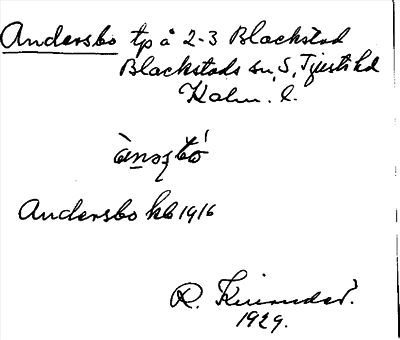 Andersbo tp å 2-3 Blackstad
Blackstads sn, S. Tjusts hd
Kalm. l.
ànsztbó
Andersbo kb 1916
R.
1929.